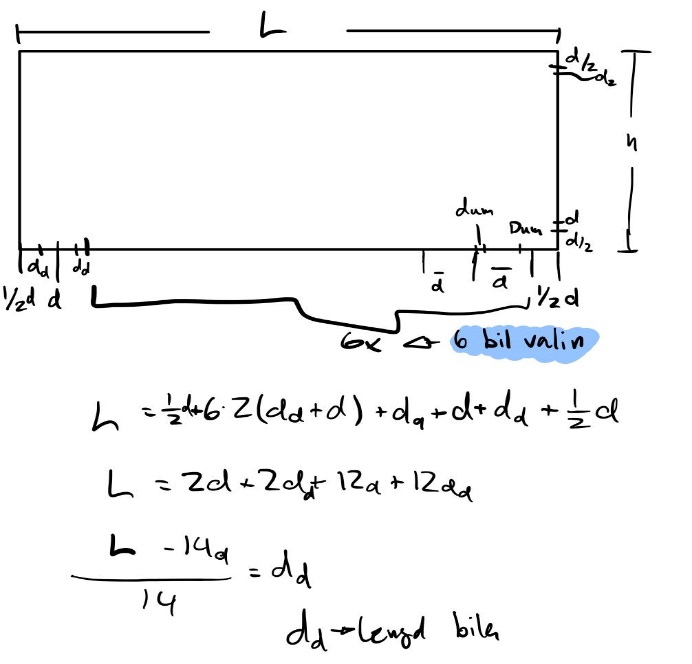 L
d/2
d₂
h
dum
Dum
d
d/2
d_d
d_d
1/2 d
d
d̄
d̄
1/2 d
6x ← 6 bil valin
L = 1/2 d + 6·2(d_d + d) + d_d + d + d_d + 1/2 d
L = 2d + 2d_d + 12d + 12d_d
L - 14d
14
= d_d
d_d → lengd bila